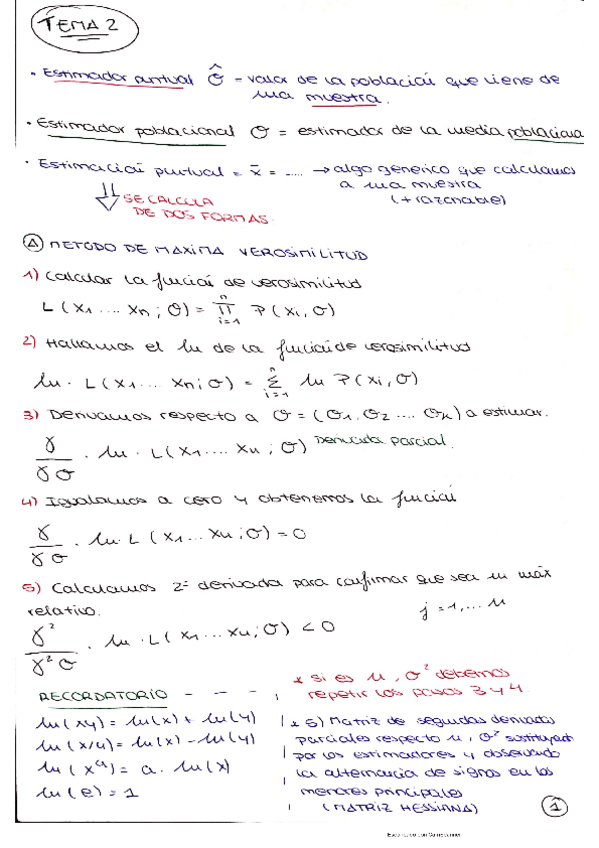 TEMA 2
• Estimador puntual σ̂ = valor de la población que viene de
una muestra.
• Estimador poblacional σ = estimador de la media poblaciona
• Estimación puntual = x̄ = ..... → algo generico que calculamos
a una muestra
(+ razonable)
SE CALCULA
DE DOS FORMAS
A METODO DE MAXIMA VEROSIMILITUD
1) Calcular la función de verosimilitud
L (x1 .... xn ; σ) = n π i=1 P(xi, σ)
2) Hallamos el ln de la función de verosimilitud
ln · L (x1 .... xn ; σ) = n Σ i=1 ln P(xi, σ)
3) Derivamos respecto a σ = (σ1, σ2 .... σk) a estimar.
γ / γσ · ln · L (x1 .... xn ; σ) Derivada parcial.
4) Igualamos a cero y obtenemos la función
γ / γσ · ln · L (x1 ... xn ; σ) = 0
5) Calculamos 2ª derivada para confirmar que sea un máx
relativo.
j = 1, ... n
γ² / γ²σ · ln · L (x1 ... xn ; σ) < 0
* si es u, σ² debemos
repetir los pasos 3 y 4
RECORDATORIO - - -
ln(xy) = ln(x) + ln(y)
ln(x/y) = ln(x) - ln(y)
ln(xᵃ) = a · ln(x)
ln(e) = 1
* 5) Matriz de segundas derivadas
parciales respecto u, σ²
por los estimadores y observando
la alternancia de signos en los
menores principales
(MATRIZ HESSIANA)
1
Escaneado con CamScanner